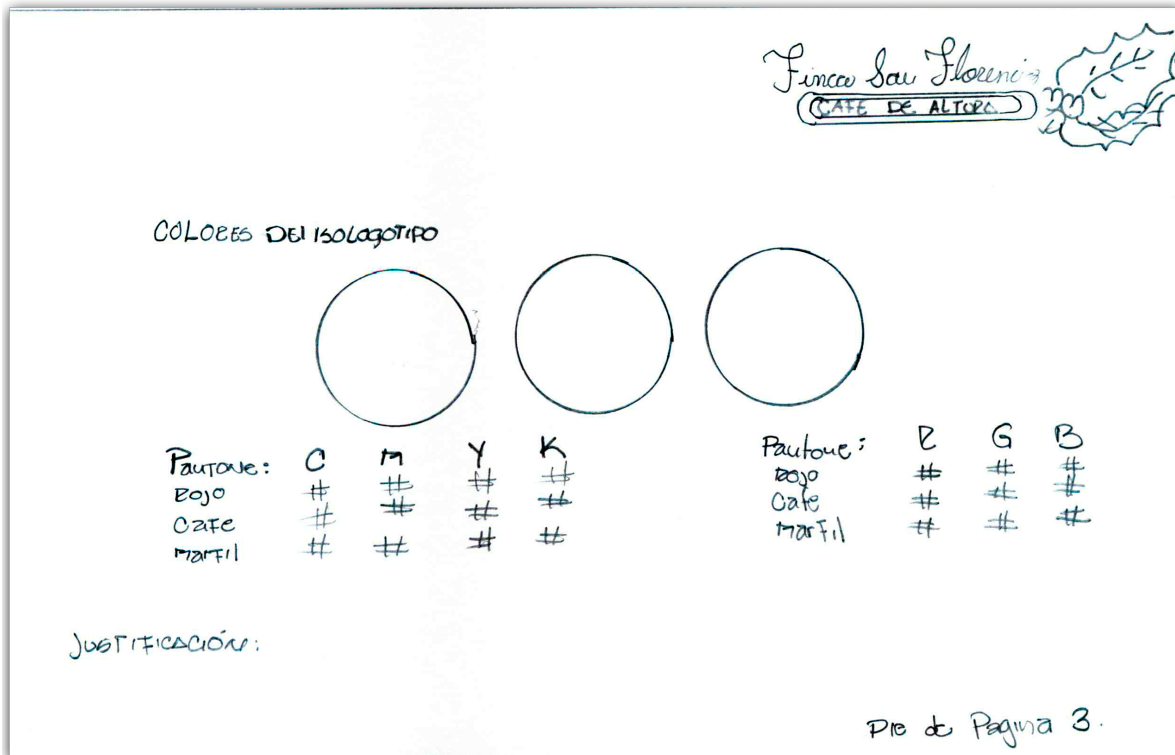 Finca San Florencia
CAFE DE ALTURA
COLORES DEL ISOLOGOTIPO
Pantone: C M Y K
Rojo # # # #
Cafe # # # #
Marfil # # # #
Pantone: R G B
Rojo # # #
Cafe # # #
Marfil # # #
JUSTIFICACIÓN:
Pie de Pagina 3.